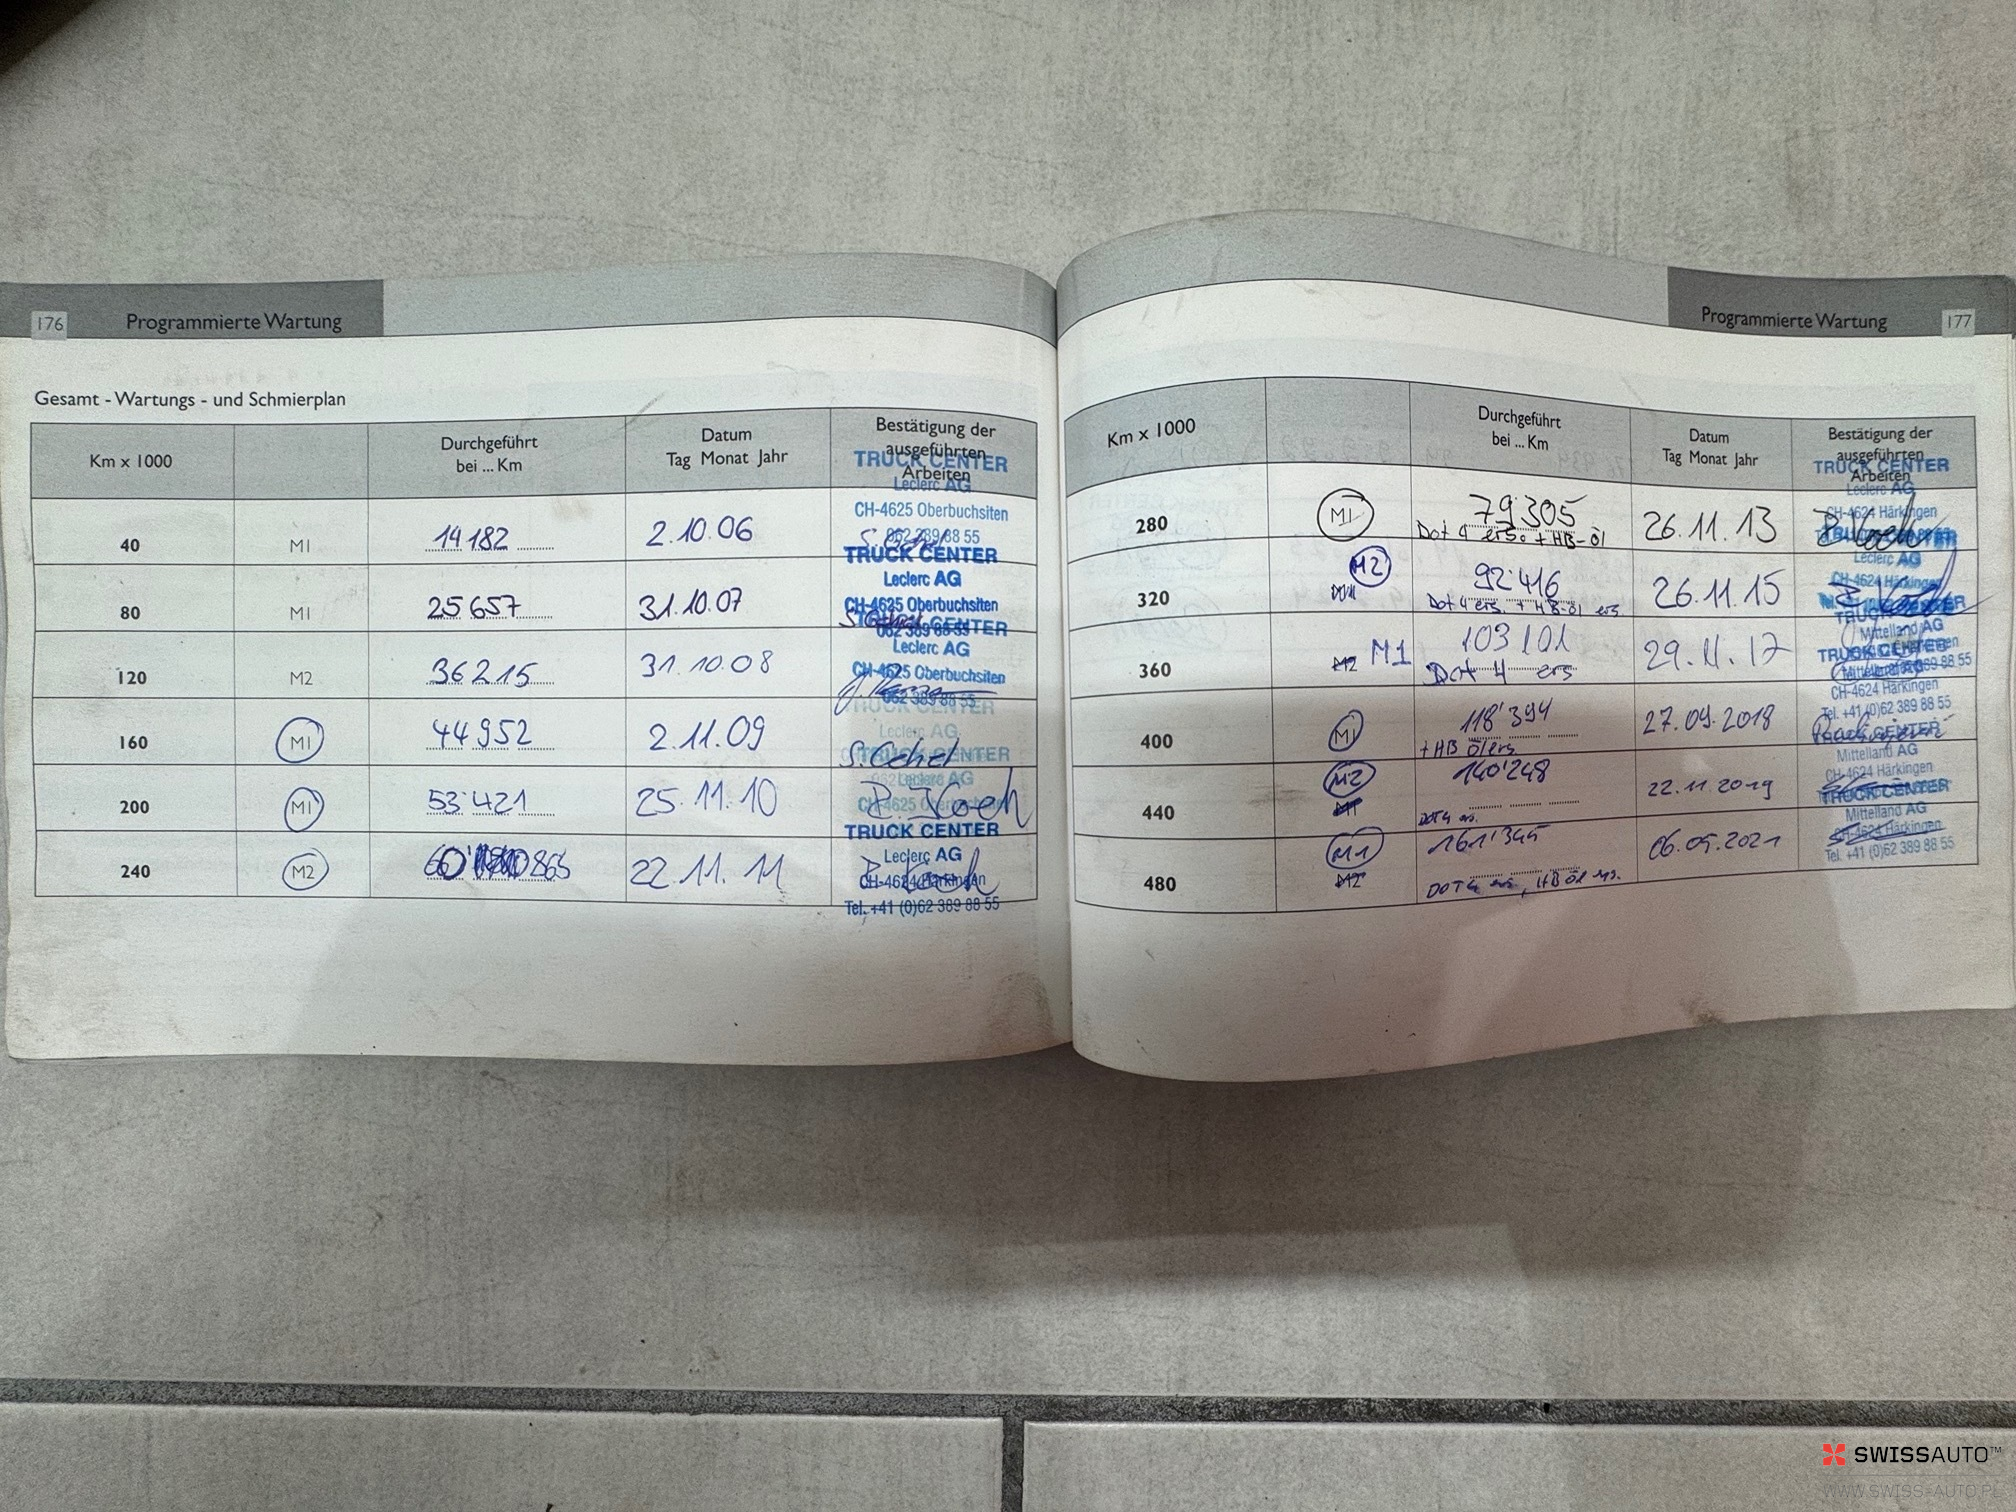 176 Programmierte Wartung
Gesamt - Wartungs - und Schmierplan
Km x 1000
Durchgeführt
bei ... Km
Datum
Tag Monat Jahr
Bestätigung der
ausgeführten
Arbeiten
TRUCK CENTER
Leclerc AG
CH-4625 Oberbuchsiten
062 389 88 55
40 M1 14182 2.10.06
TRUCK CENTER
Leclerc AG
CH-4625 Oberbuchsiten
062 389 88 55
80 M1 25657 31.10.07
TRUCK CENTER
Leclerc AG
CH-4625 Oberbuchsiten
062 389 88 55
120 M2 36215 31.10.08
TRUCK CENTER
Leclerc AG
160 M1 44952 2.11.09
TRUCK CENTER
Leclerc AG
CH-4625
200 M1 53'421 25.11.10
TRUCK CENTER
Leclerc AG
CH-4624 Härkingen
Tel. +41 (0)62 389 88 55
240 M2 22.11.11
Programmierte Wartung 177
Km x 1000
Durchgeführt
bei ... Km
Datum
Tag Monat Jahr
Bestätigung der
ausgeführten
Arbeiten
TRUCK CENTER
Leclerc AG
CH-4624 Härkingen
280 M1 79'305 26.11.13
Dot 4 ers. + HB-Öl
Leclerc AG
CH-4624 Härkingen
M2
320 92'416 26.11.15
Dot 4 ers. + HB-Öl ers
TRUCK CENTER
Mittelland AG
360 M2 M1 103 101 29.11.17
Dot 4 ers
TRUCK CENTER
Mittelland AG
CH-4624 Härkingen
Tel. +41 (0)62 389 88 55
400 M1 118'394 27.09.2018
+ HB Öl ers
TRUCK CENTER
Mittelland AG
CH-4624 Härkingen
M2
440 M1 140'248 22.11.2019
DOT4 ers.
TRUCK CENTER
Mittelland AG
CH-4624 Härkingen
Tel. +41 (0)62 389 88 55
M1
480 M2 161'345 06.05.2021
DOT4 ers, HB Öl ers.
SWISSAUTO™
WWW.SWISS-AUTO.PL